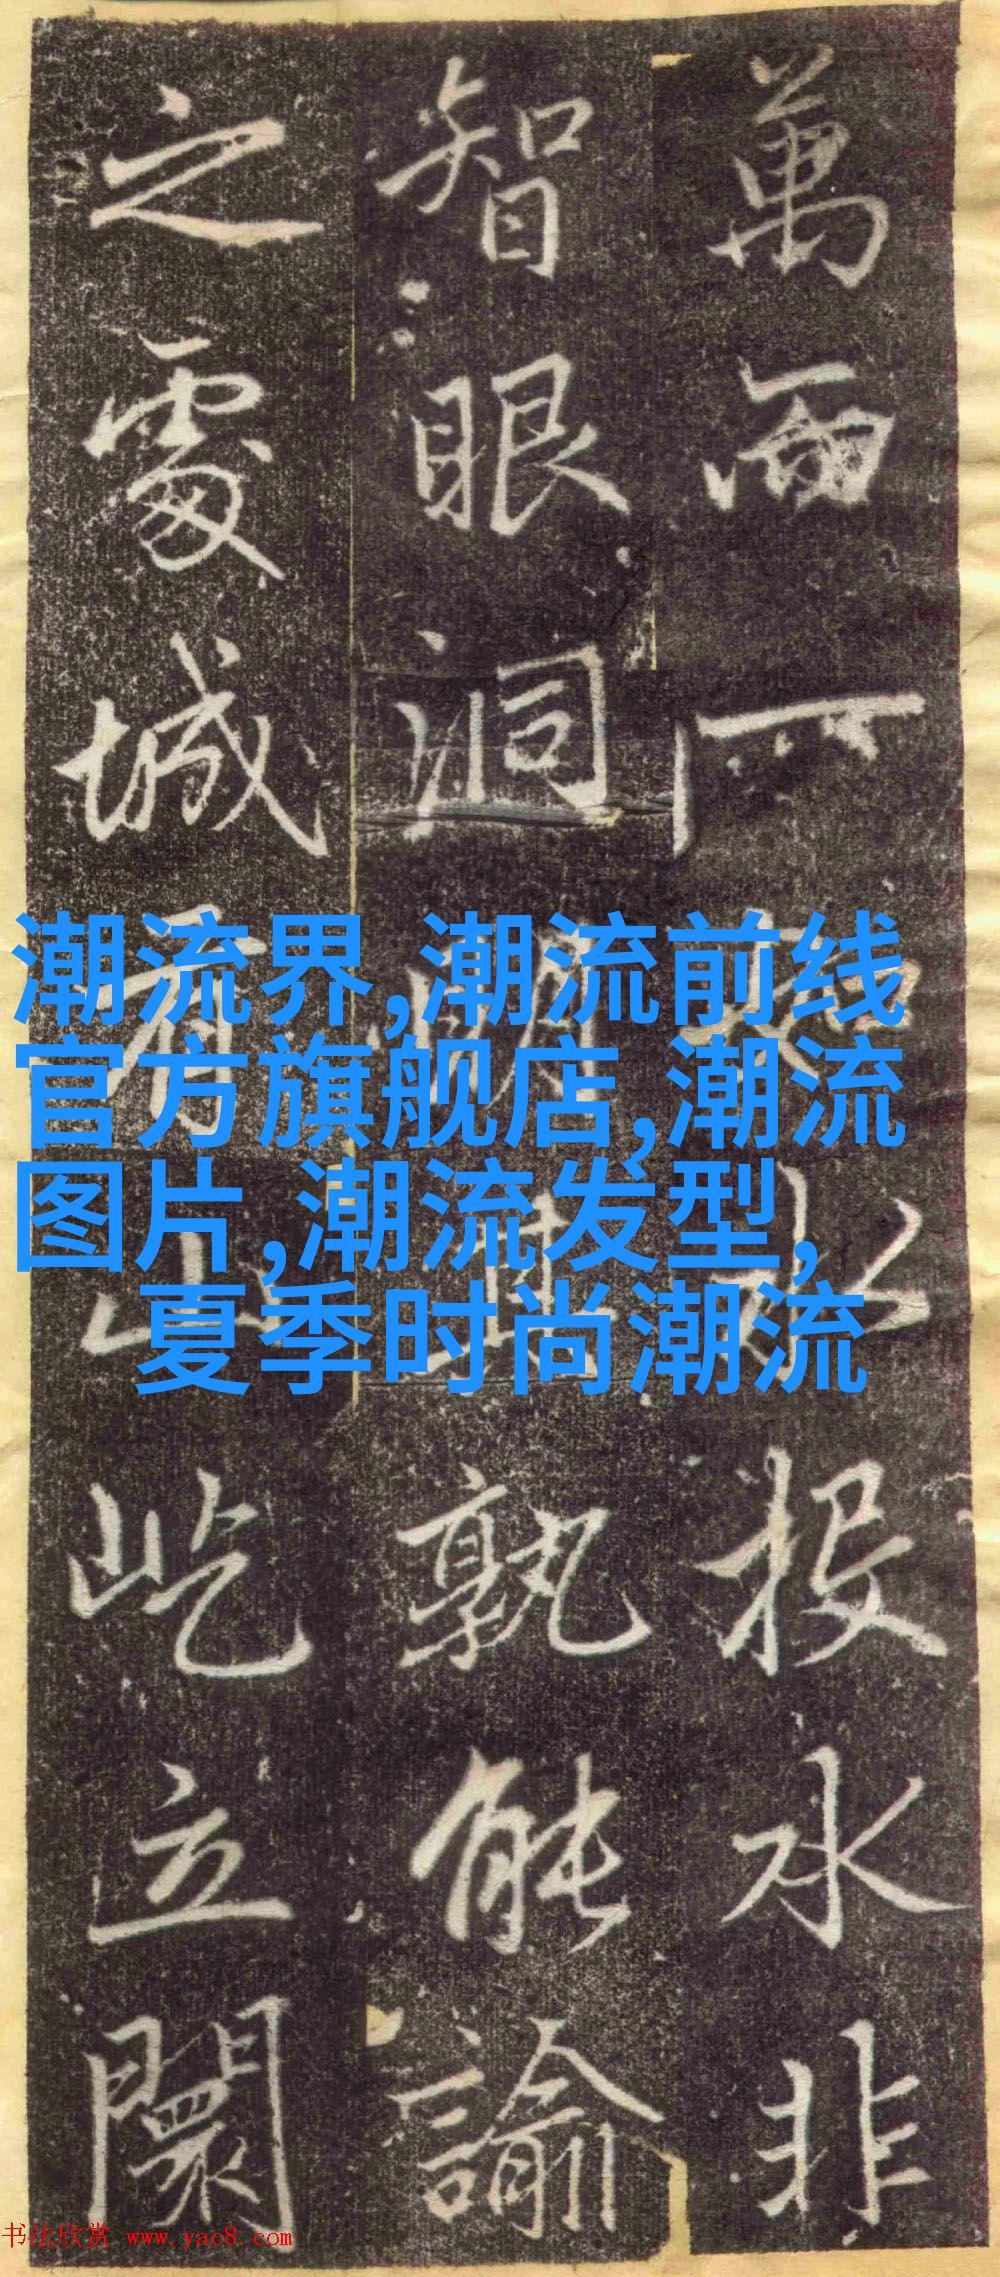 萬投水非
智眼洞明其孰能諭
之處城有山屹立闤
潮流界,潮流前线
官方旗舰店,潮流
图片,潮流发型,
夏季时尚潮流
书法欣赏 www.yac8.com